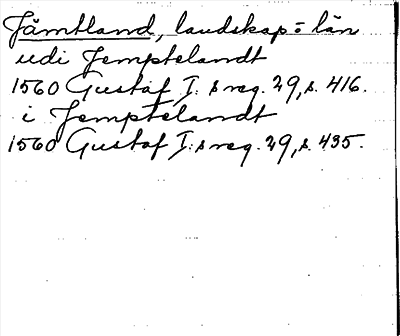 Jämtland, landskap = län
udi Jemptelandt
1560 Gustaf I:s reg. 29, s. 416.
i Jemptelandt
1560 Gustaf I:s reg. 29, s. 435.